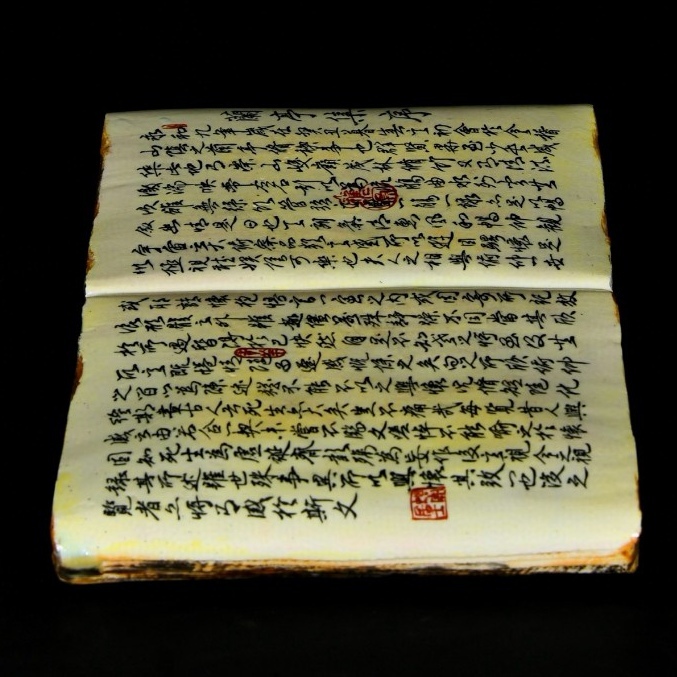 蘭亭集序
永和九年歲在癸丑暮春之初會於會稽
山陰之蘭亭修禊事也群賢畢至少長咸
集此地有崇山峻嶺茂林修竹又有清流
激湍映帶左右引以為流觴曲水列坐其
次雖無絲竹管弦之盛一觴一詠亦足以暢
敘幽情是日也天朗氣清惠風和暢仰觀
宇宙之大俯察品類之盛所以遊目騁懷足
以極視聽娛信可樂也夫人之相與俯仰一世
或取諸懷抱悟言一室之內或因寄所託放
浪形骸之外雖趣舍萬殊靜躁不同當其欣
於所遇暫得於己快然自足不知老之將至及
所之既倦情隨事遷感慨係之矣向之所欣俯仰
之間以為陳迹猶不能不以之興懷況修短隨化
終期於盡古人云死生亦大矣豈不痛哉每覽昔人興
感之由若合一契未嘗不臨文嗟悼不能喻之於懷
固知死生為虛誕齊彭殤為妄作後之視今之視
錄其所述雖世殊事異所以興懷其致一也後之
覽者亦將有感於斯文